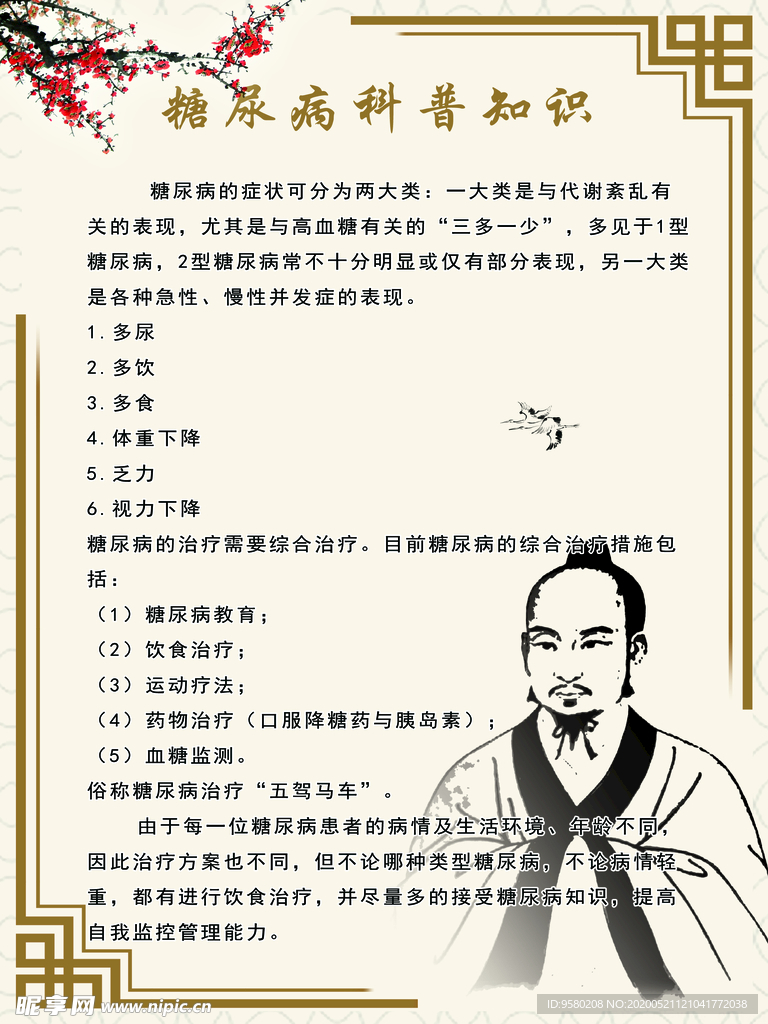 糖尿病科普知识
糖尿病的症状可分为两大类：一大类是与代谢紊乱有
关的表现，尤其是与高血糖有关的“三多一少”，多见于1型
糖尿病，2型糖尿病常不十分明显或仅有部分表现，另一大类
是各种急性、慢性并发症的表现。
1.多尿
2.多饮
3.多食
4.体重下降
5.乏力
6.视力下降
糖尿病的治疗需要综合治疗。目前糖尿病的综合治疗措施包
括：
（1）糖尿病教育；
（2）饮食治疗；
（3）运动疗法；
（4）药物治疗（口服降糖药与胰岛素）；
（5）血糖监测。
俗称糖尿病治疗“五驾马车”。
由于每一位糖尿病患者的病情及生活环境、年龄不同，
因此治疗方案也不同，但不论哪种类型糖尿病，不论病情轻
重，都有进行饮食治疗，并尽量多的接受糖尿病知识，提高
自我监控管理能力。
昵享网 www.nipic.cn
ID:9580208 NO:20200521121041772038